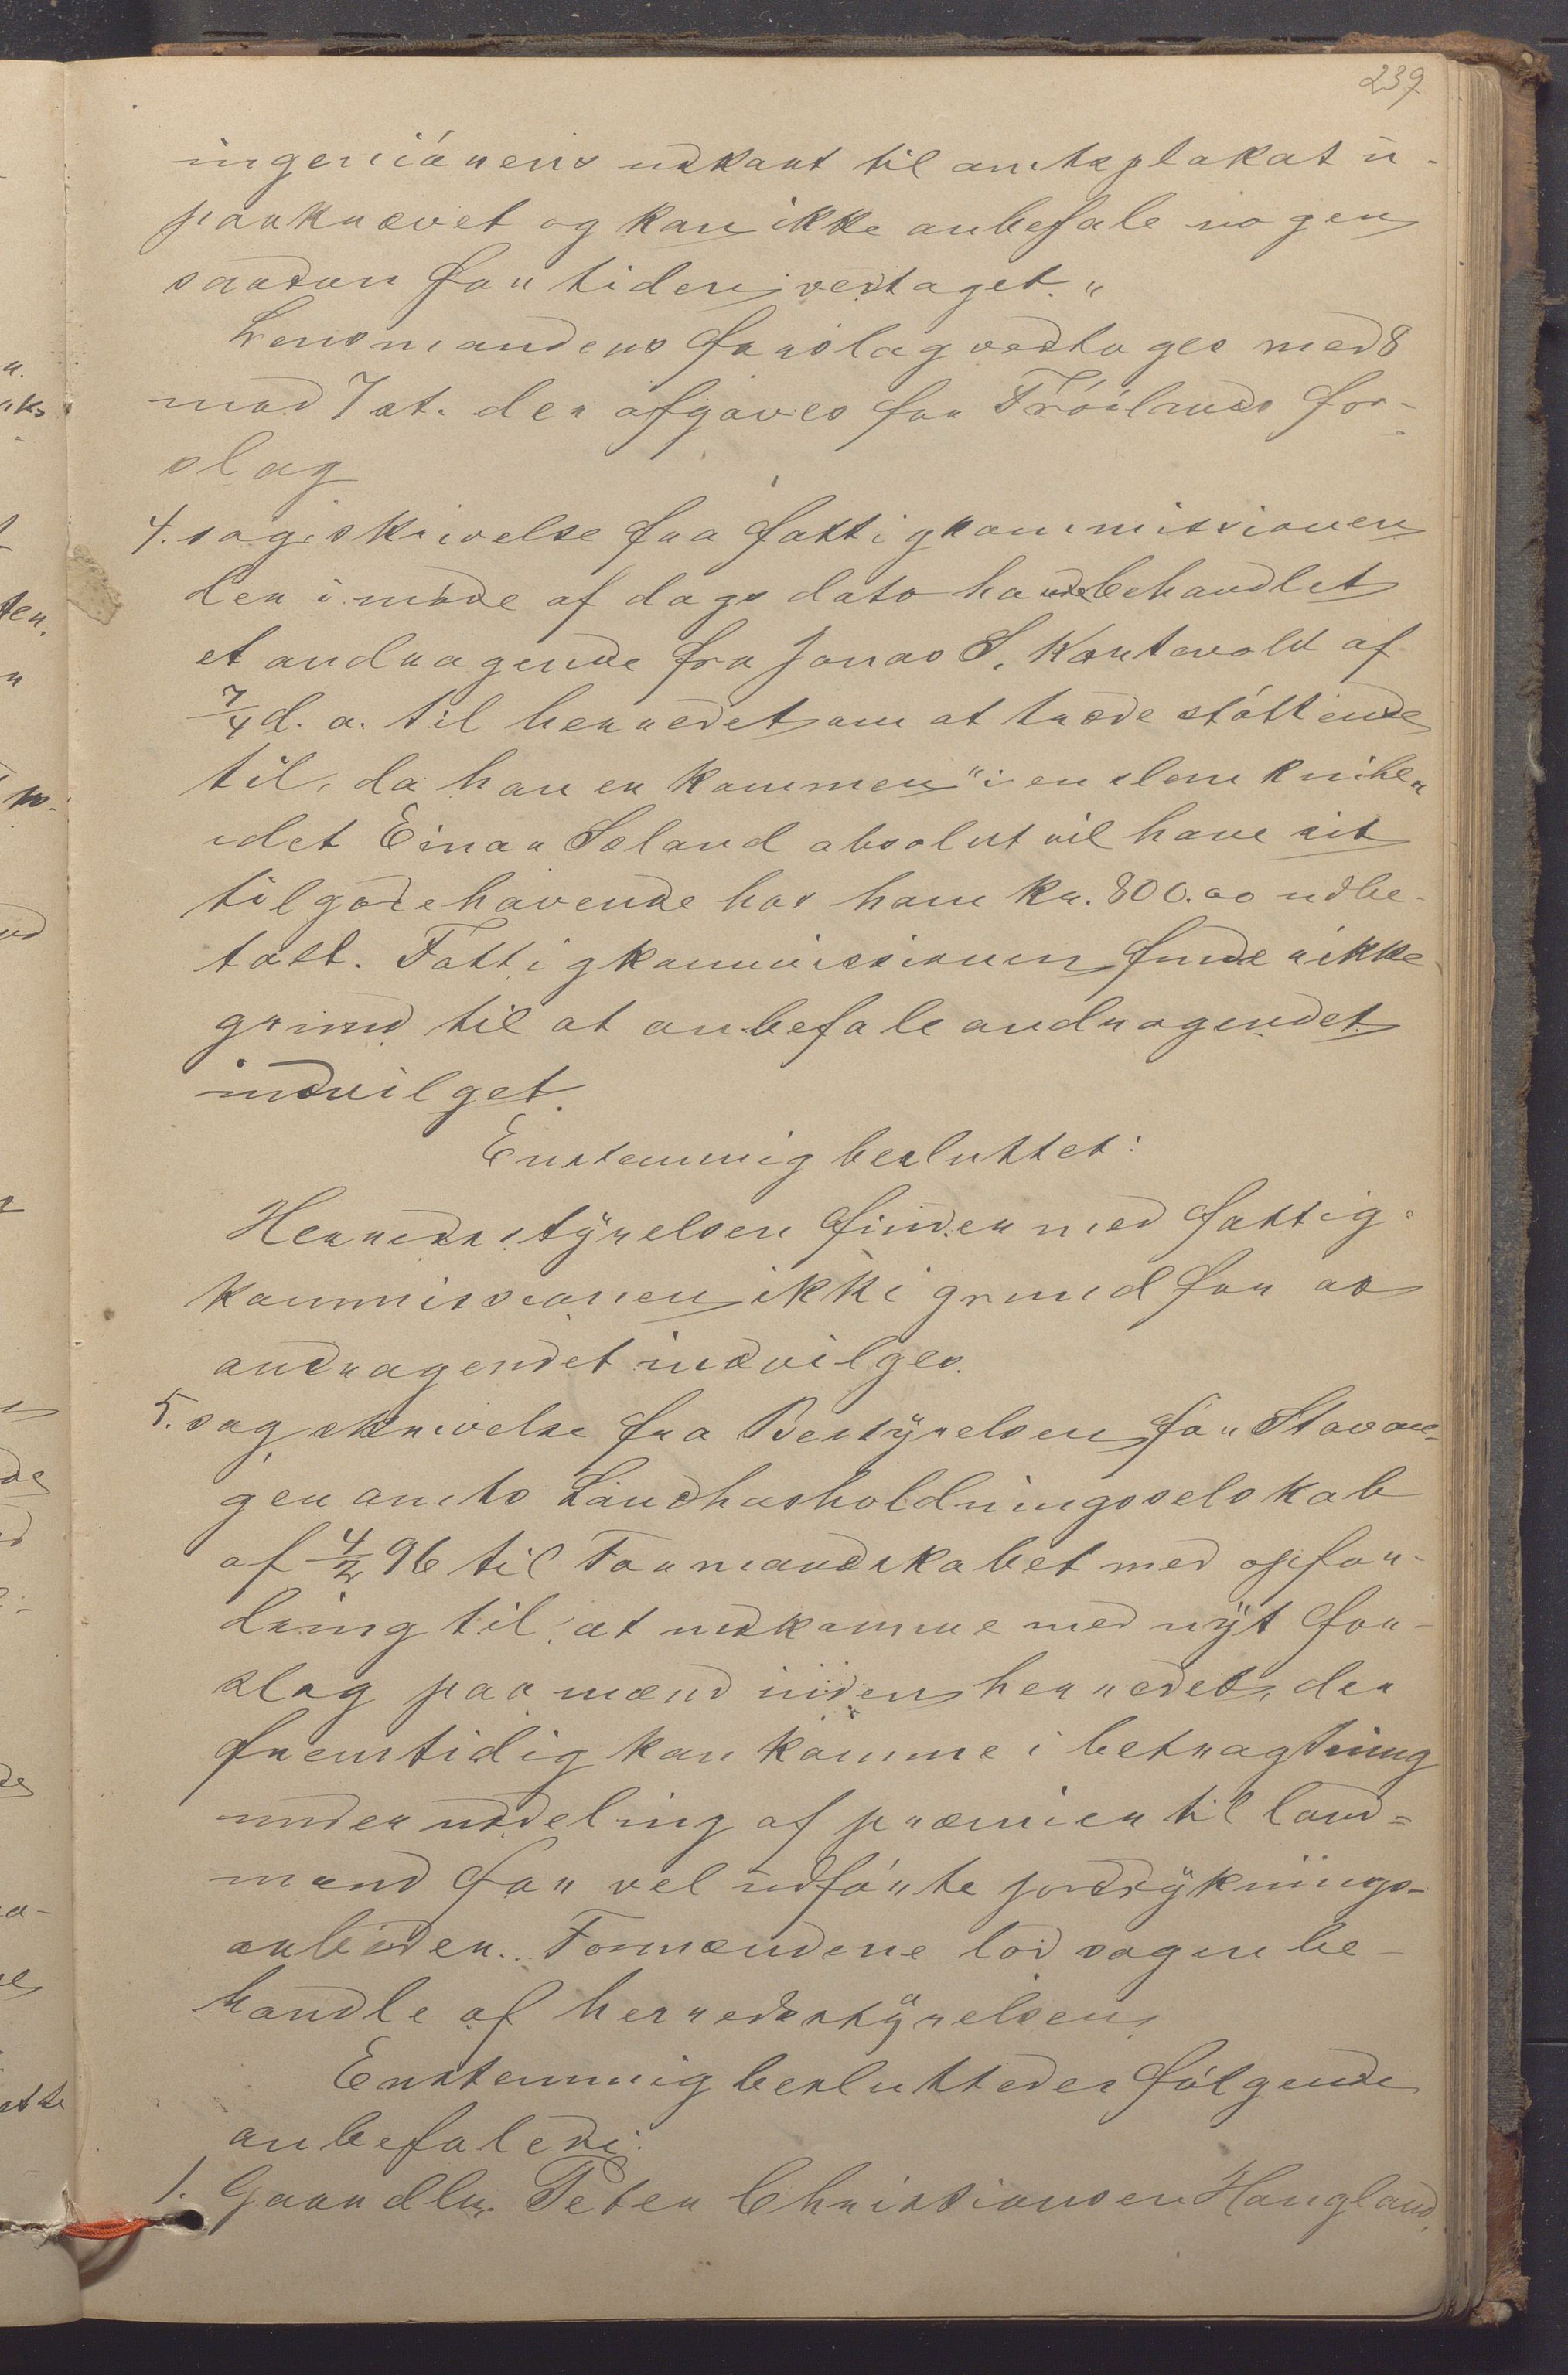 239
ingeniörens udkast til amtsplakat u-
paakrævet og kan ikke anbefale nogen
saadan for tiden vedtaget."
Lensmandens forslag vedtages med 8
mod 7 st. der afgaves for Tröilands for-
slag
4. sag: skrivelse fra fattigkommissionen
der i möde af dags dato havde behandlet
et andragende fra Jonas S. Kartavold af
7/4 d. a. til herredet om at træde støttende
til, da han er kommen "i en slem knibe"
idet Einar Søland absolut vil have sit
tilgodehavende hos ham kr. 800.00 udbe-
talt. Fattigkommissionen finder ikke
grund til at anbefale andragendet
indvilget.
Enstemmig besluttet:
Herredsstyrelsen finder med fattig-
kommissionen ikke grund for at
andragendet indvilges.
5. sag skrivelse fra Bestyrelsen for Stavan-
ger amts Landhusholdningsselskab
af 4/2 96 til Formandskabet med opfor-
dring til at udkomme med nyt for-
slag paa mænd inden herredet, der
fremtidig kan komme i betragtning
under uddeling af præmier til land-
mænd for vel udförte jorddyrknings-
arbeider. Formændene lod sagen be-
handle af herredsstyrelsen
Enstemmig besluttedes fölgende
anbefalede:
1. Gaardbr. Peter Christiansen Haugland,